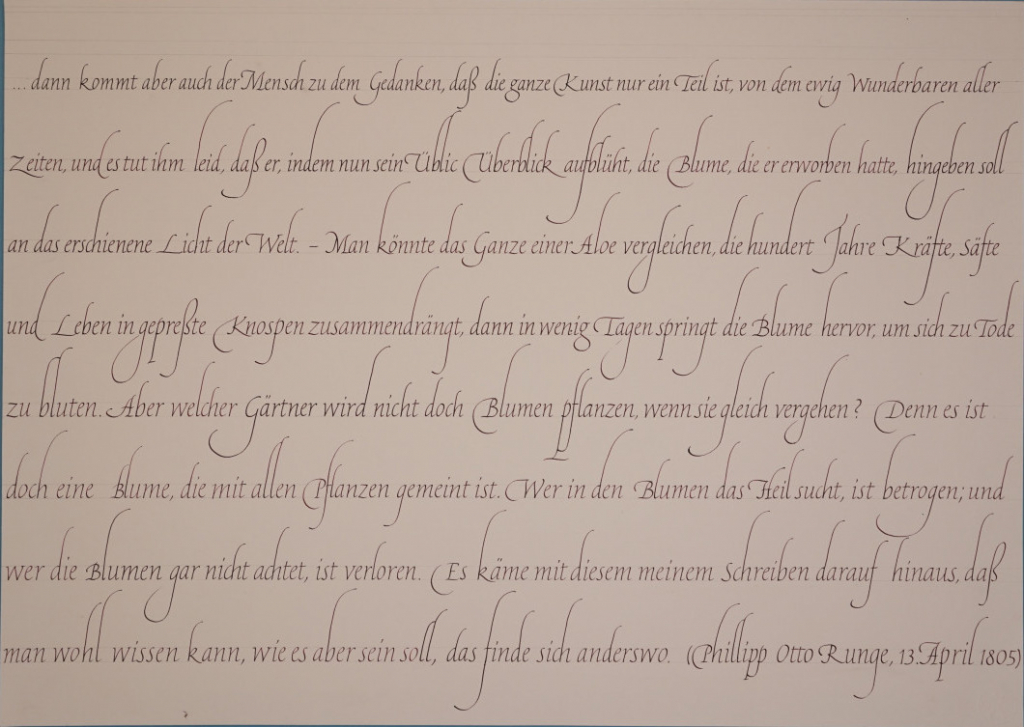 ... dann kommt aber auch der Mensch zu dem Gedanken, daß die ganze Kunst nur ein Teil ist, von dem ewig Wunderbaren aller
Zeiten, und es tut ihm leid, daß er, indem nun sein Üblic Überblick aufblüht, die Blume, die er erworben hatte, hingeben soll
an das erschienene Licht der Welt. – Man könnte das Ganze einer Aloe vergleichen, die hundert Jahre Kräfte, Säfte
und Leben in gepreßte Knospen zusammendrängt, dann in wenig Tagen springt die Blume hervor, um sich zu Tode
zu bluten. Aber welcher Gärtner wird nicht doch Blumen pflanzen, wenn sie gleich vergehen? Denn es ist
doch eine Blume, die mit allen Pflanzen gemeint ist. Wer in den Blumen das Heil sucht, ist betrogen; und
wer die Blumen gar nicht achtet, ist verloren. Es käme mit diesem meinem Schreiben darauf hinaus, daß
man wohl wissen kann, wie es aber sein soll, das finde sich anderswo. (Phillipp Otto Runge, 13. April 1805)